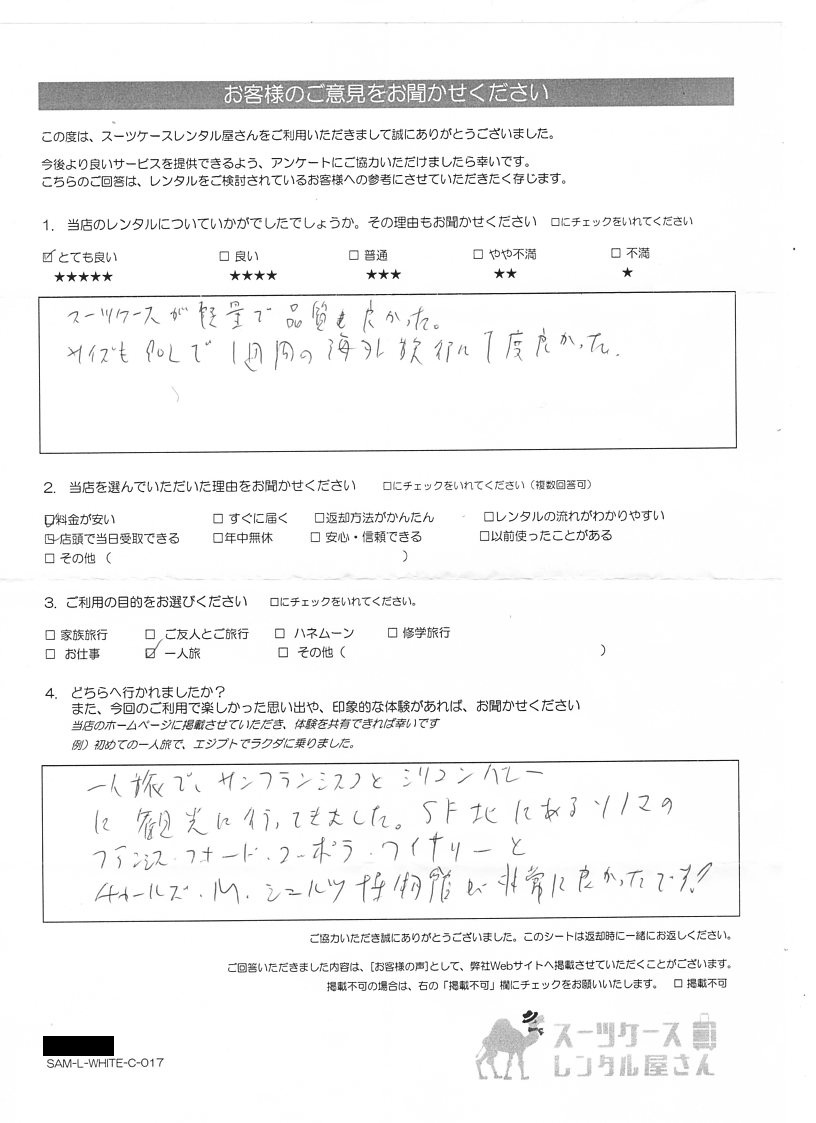 お客様のご意見をお聞かせください
この度は、スーツケースレンタル屋さんをご利用いただきまして誠にありがとうございました。
今後より良いサービスを提供できるよう、アンケートにご協力いただけましたら幸いです。
こちらのご回答は、レンタルをご検討されているお客様への参考にさせていただきたく存じます。
1. 当店のレンタルについていかがでしたでしょうか。その理由もお聞かせください □にチェックをいれてください
☑ とても良い □ 良い □ 普通 □ やや不満 □ 不満
★★★★★ ★★★★ ★★★ ★★ ★
スーツケースが軽量で品質も良かった。
サイズも80Lで1週間の海外旅行に丁度良かった.
2. 当店を選んでいただいた理由をお聞かせください □にチェックをいれてください（複数回答可）
☑料金が安い □ すぐに届く □返却方法がかんたん □レンタルの流れがわかりやすい
☑店頭で当日受取できる □年中無休 □ 安心・信頼できる □以前使ったことがある
□ その他（ ）
3. ご利用の目的をお選びください □にチェックをいれてください。
□ 家族旅行 □ ご友人とご旅行 □ ハネムーン □ 修学旅行
□ お仕事 ☑ 一人旅 □ その他（ ）
4. どちらへ行かれましたか？
また、今回のご利用で楽しかった思い出や、印象的な体験があれば、お聞かせください
当店のホームページに掲載させていただき、体験を共有できれば幸いです
例）初めての一人旅で、エジプトでラクダに乗りました。
一人旅で、サンフランシスコとシリコンバレー
に観光に行ってきました。SF北にあるソノマの
フランシス・フォード・コーポラ・ワイナリーと
チャールズ・M・シュルツ博物館が非常に良かったです!
ご協力いただき誠にありがとうございました。このシートは返却時に一緒にお返しください。
ご回答いただきました内容は、[お客様の声]として、弊社Webサイトへ掲載させていただくことがございます。
掲載不可の場合は、右の「掲載不可」欄にチェックをお願いいたします。 □ 掲載不可
SAM-L-WHITE-C-017
スーツケース
レンタル屋さん